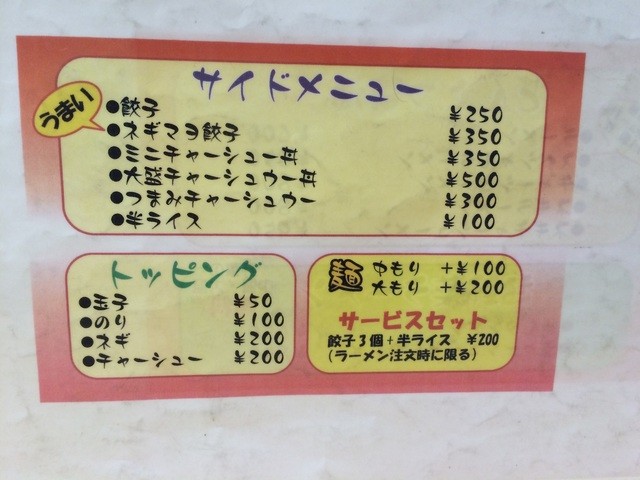 サイドメニュー
うまい
●餃子 ¥250
●ネギマヨ餃子 ¥350
●ミニチャーシュー丼 ¥350
●大盛チャーシュウー丼 ¥500
●つまみチャーシュウー ¥300
●半ライス ¥100
トッピング
●玉子 ¥50
●のり ¥100
●ネギ ¥200
●チャーシュー ¥200
中もり +¥100
大もり +¥200
サービスセット
餃子3個+半ライス ¥200
(ラーメン注文時に限る)